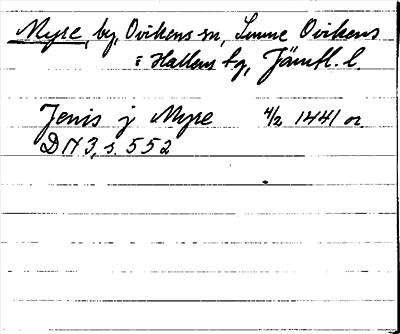 Myre, by, Ovikens sn, Sunne Ovikens
o Hallens tg, Jämtl. l.
Jenis j Myre 4/2 1441 or.
DN 3, s. 552